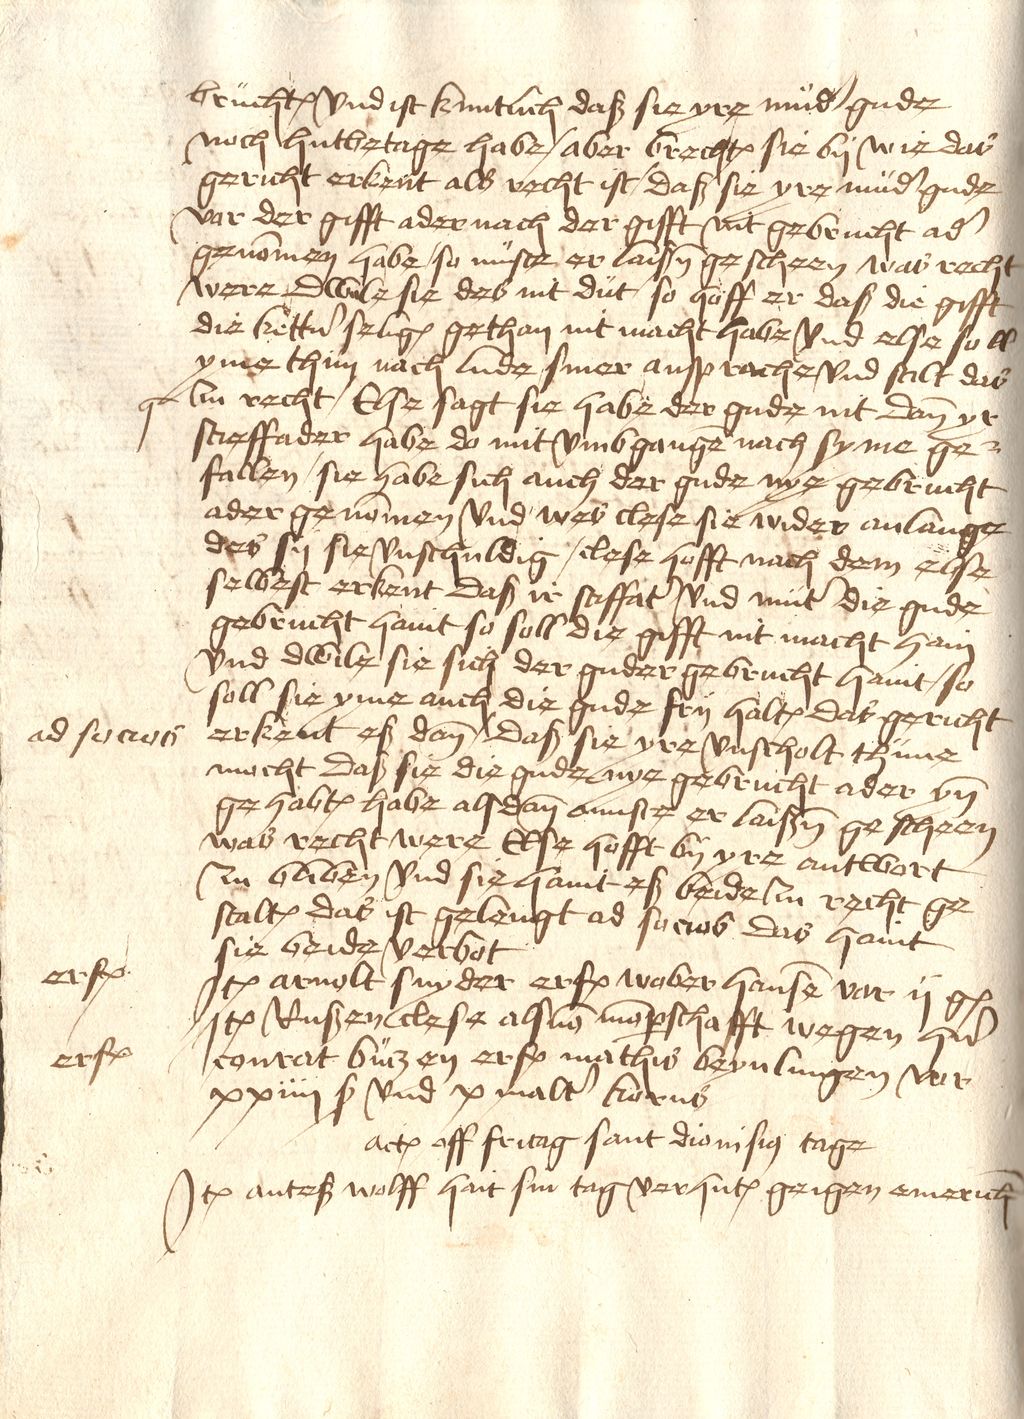 bruchte Vnd ist kuntlich daß sie yre mud' gude
noch hutbetage habe / aber brecht sie by wie das
gericht erkent als recht ist / daß sie yre mud' gude
var der gifft ader nach der gifft nit gebrucht ad'
genōmen habe / so muste er laißn gescheen was recht
were dwile sie des nit dut so hoff er daß die gifft
die kett'n selig gethan nit macht habe Vnd else soll
yme thun nach lude siner ansprache Vnd stilt das
zu recht / Else sagt sie habe der gude nit dan̄ yr
stieffader habe do mit vmbgangē nach syme ge-
fallen / sie habe sich auch der gude nye gebrucht
ader genōmen Vnd wes clese sie wider anlange
des sij sie vnschuldig / clese hofft nach dem else
selbest erkent daß ir stiffat' Vnd mut' die gude
gebrucht hait so soll die gifft nit macht hain
Vnd dwile sie sich der guder gebrucht hait / so
soll sie yme auch die gude frij halt das gericht
ad socios erkent eß dan̄ / daß sie yre vnscholt thune
mocht daß sie die gude nye gebrucht ader yn̄
gehabt habe alßdan̄ muste er laißn gescheen
was recht were Else hofft by yre antwort
zu bliben Vnd sie hait eß beide zu recht ge
stalt das ist gelengt ad socios das hait
sie beide verbot
erf Jt arnolt snyder erf wober hansē var ij g
Jt Rußen clese als vō mōpschafft wegen h'n
erf conrat butzen erf mathis beynlingen vor
xxiiij ß Vnd x malt' korns
act off fritag sant dionisiq tage
Jt anteß wolff hait sin tag verhut geigen emerich